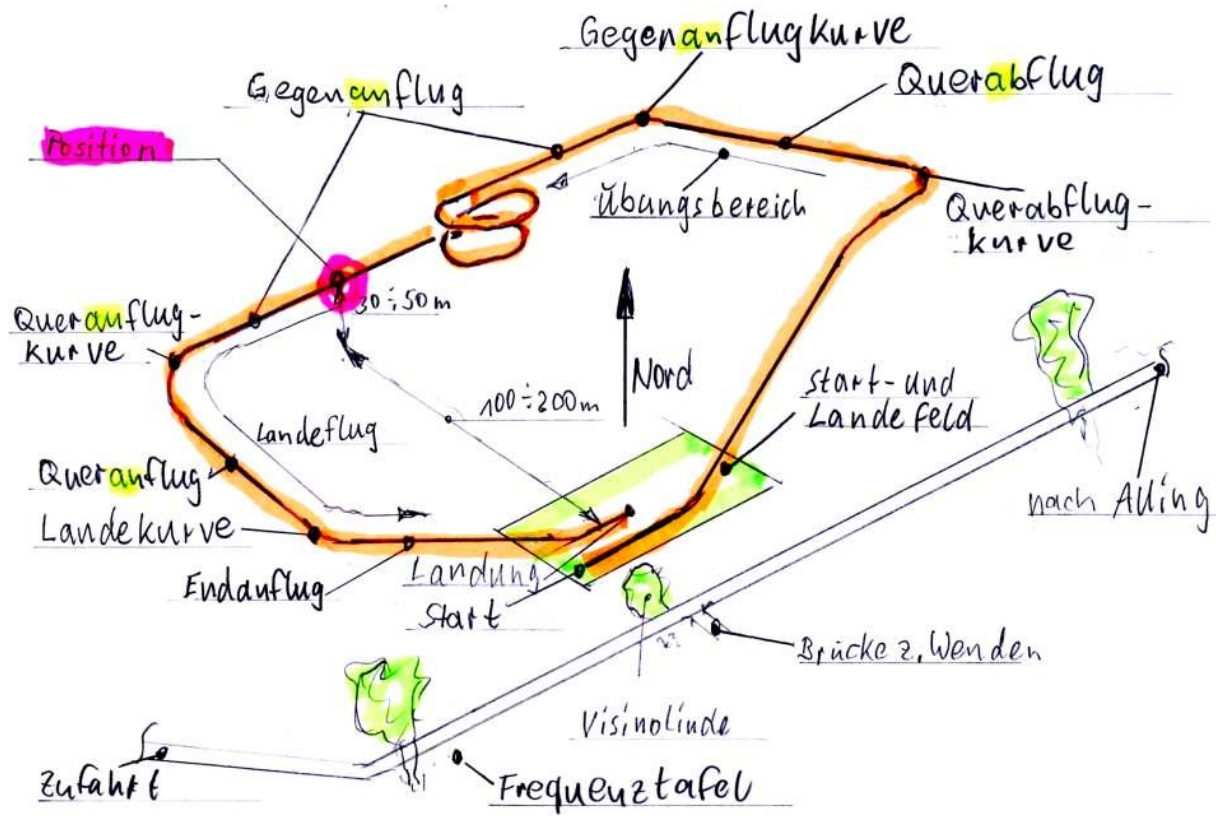 Gegenanflugkurve
Gegenanflug
Querabflug
Position
Übungsbereich
Querabflug-
kurve
30÷50m
Queranflug-
kurve
Nord
100÷200m
Start- und
Landefeld
Landeflug
Queranflug
nach Alling
Landekurve
Endanflug
Landung
Start
Brücke z. Wenden
Visinolinde
Zufahrt
Frequenztafel